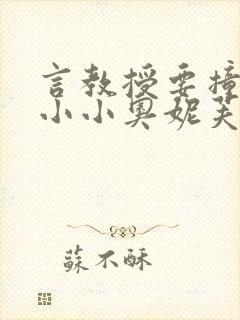 言教授要撞
小小奥妮芙
蘇不酥